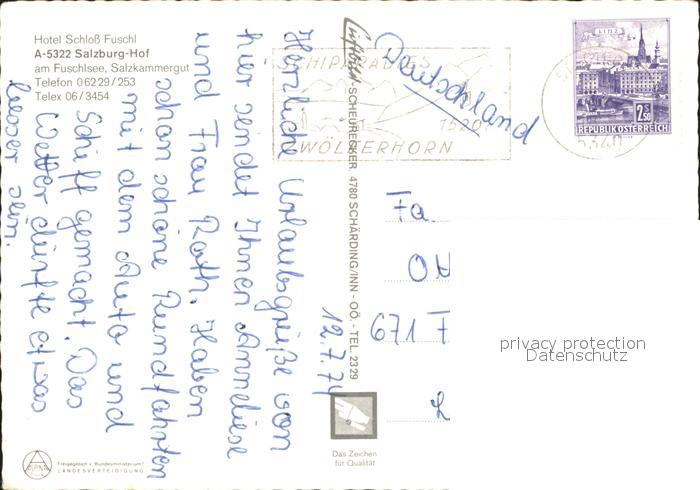 Hotel Schloß Fuschl
A-5322 Salzburg-Hof
am Fuschlsee, Salzkammergut
Telefon 06229/253
Telex 06/3454
Herzliche Urlaubsgrüße von
hier sendet Ihnen Anneliese
und Frau Roth. Haben
schon schöne Rundfahrten
mit dem Auto und
Schiff gemacht. Das
Wetter dürfte etwas
besser sein.
12.7.74
Luftbild-SCHEURECKER 4780 SCHÄRDING/INN - OÖ - TEL. 2329
SCHIPARADIES
1520
WOLFERHORN
LINZ
2S50
REPUBLIK ÖSTERREICH
5340
Deutschland
Fa.
671 F
privacy protection
Datenschutz
Das Zeichen
für Qualität
Freigegeben v. Bundesministerium f.
LANDESVERTEIDIGUNG